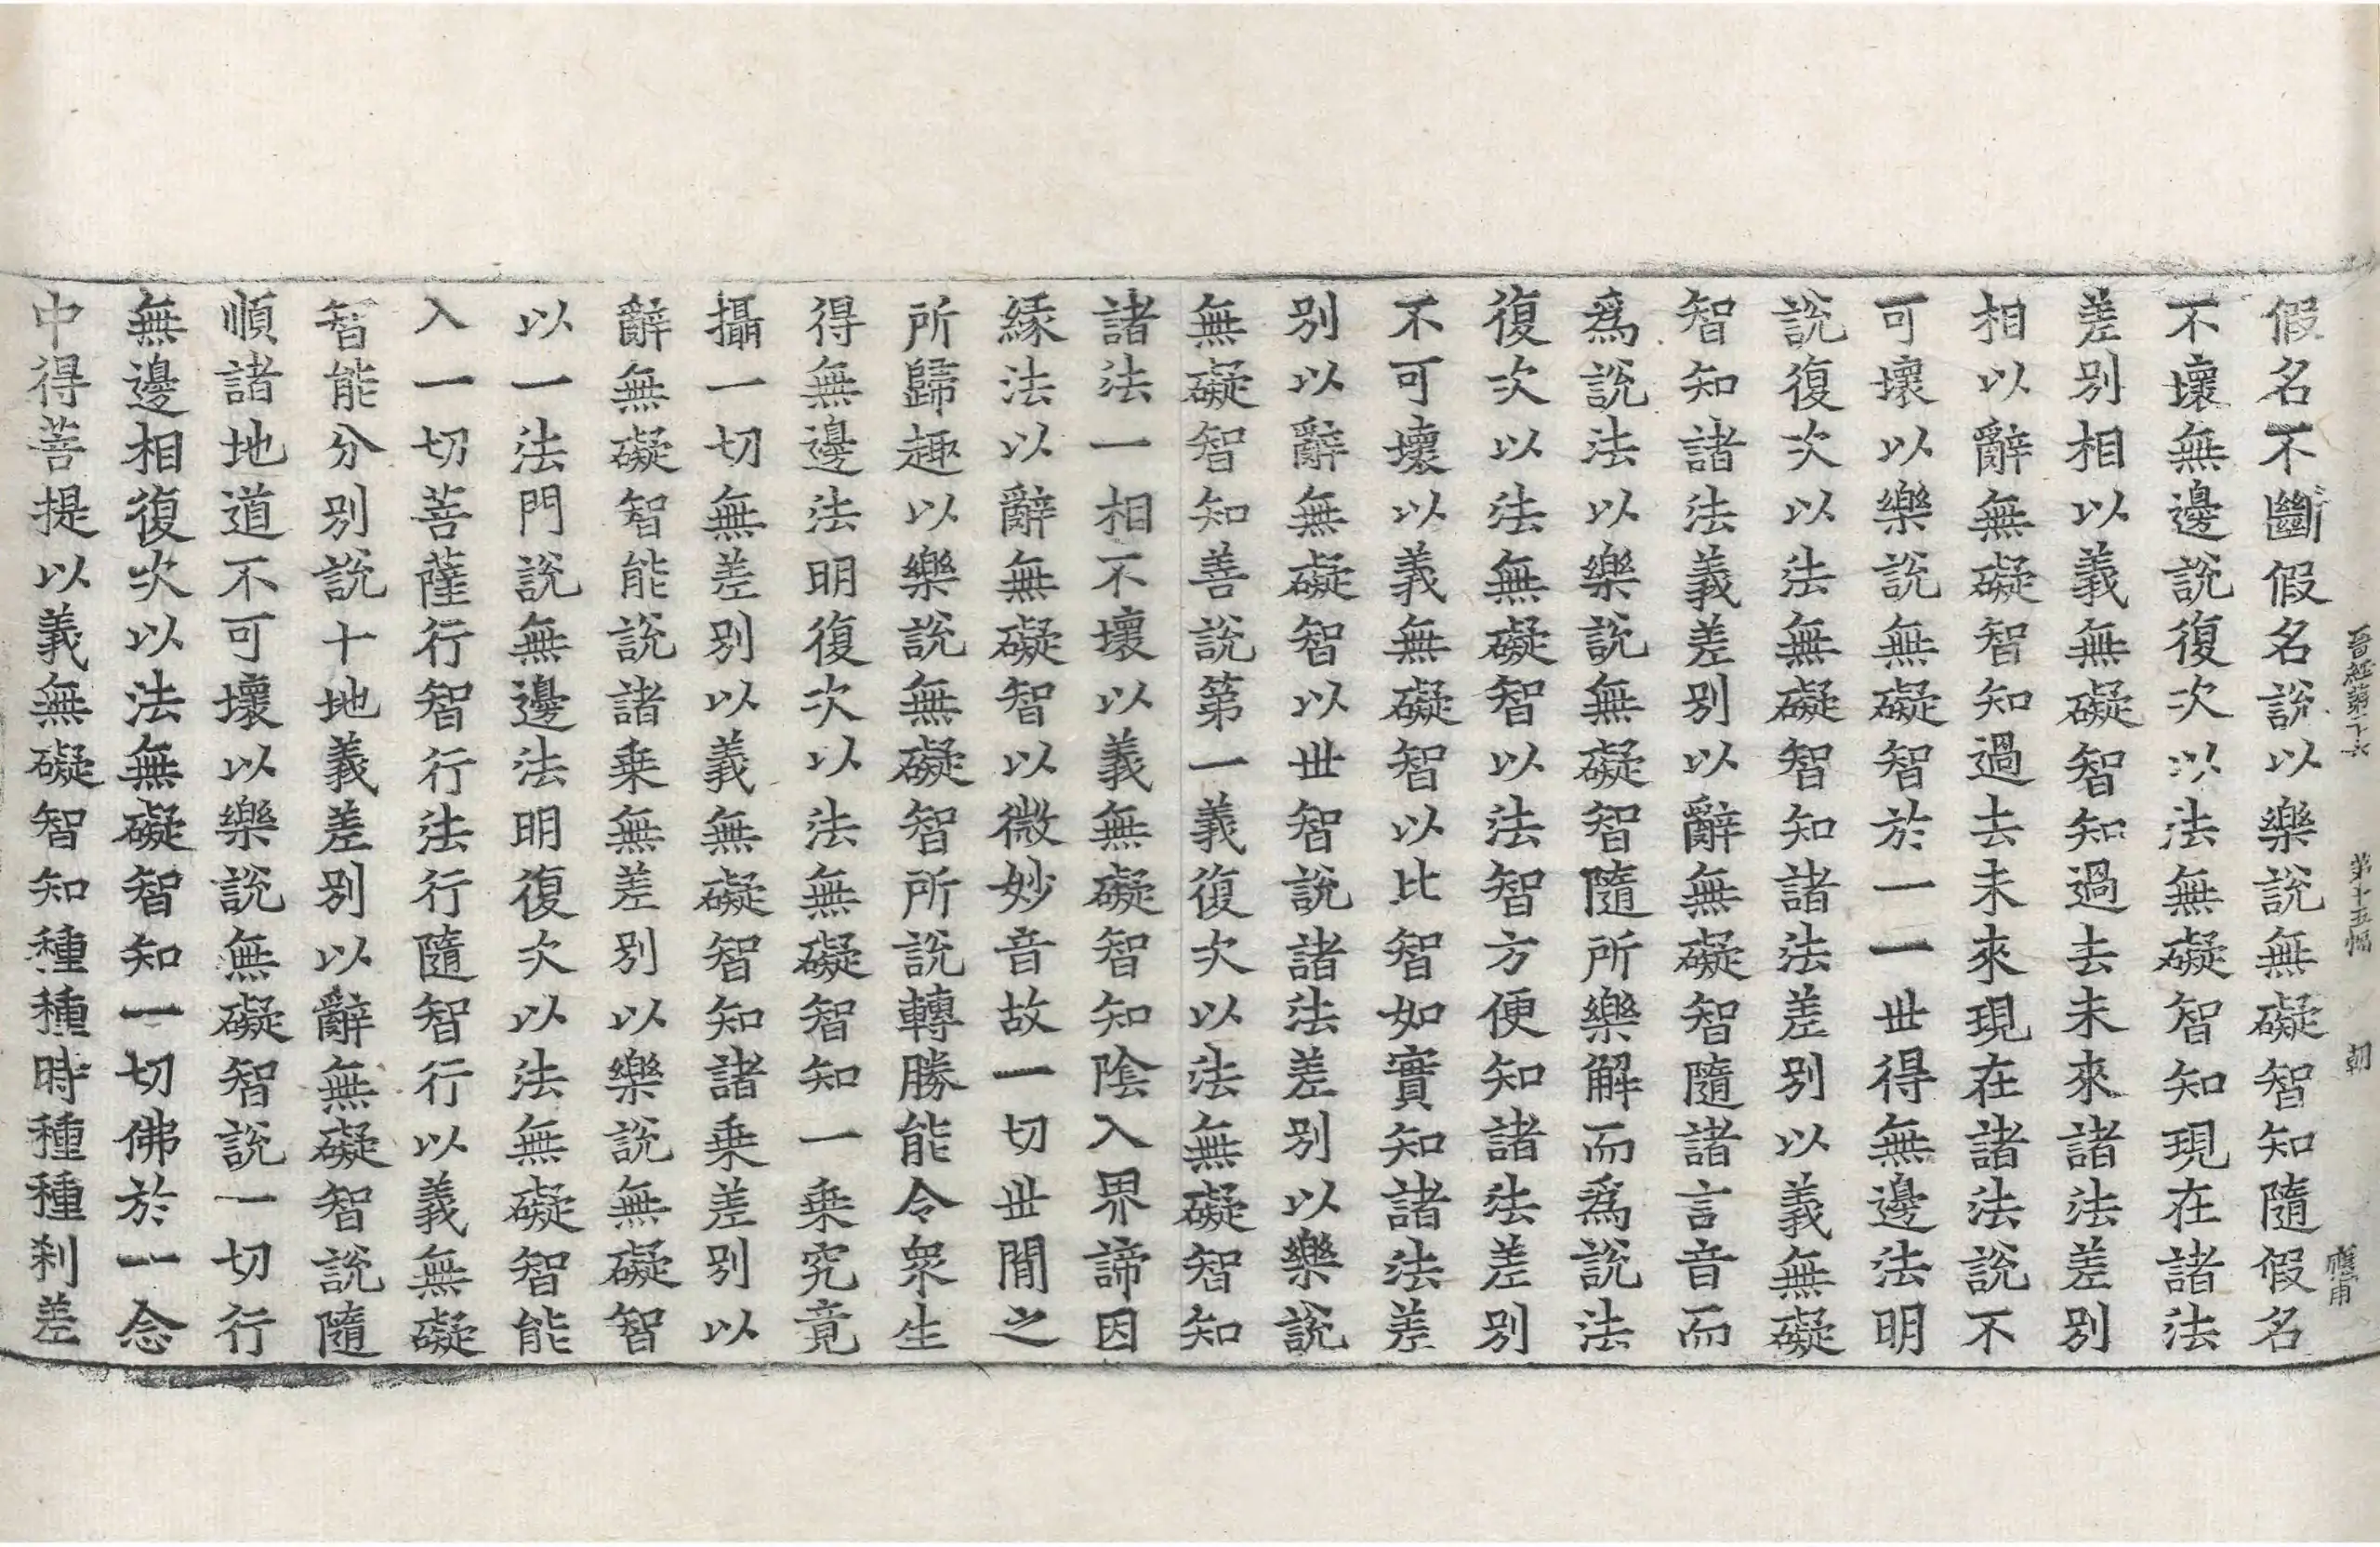 晉經第二十六 第十五幅 朝
假名不斷假名說以樂說無礙智知隨假名
不壞無邊說復次以法無礙智知現在諸法
差別相以義無礙智知過去未來諸法差別
相以辭無礙智知過去未來現在諸法說不
可壞以樂說無礙智於一一世得無邊法明
說復次以法無礙智知諸法差別以義無礙
智知諸法義差別以辭無礙智隨諸言音而
爲說法以樂說無礙智隨所樂解而爲說法
復次以法無礙智以法智方便知諸法差別
不可壞以義無礙智以比智如實知諸法差
別以辭無礙智以世智說諸法差別以樂說
無礙智知善說第一義復次以法無礙智知
諸法一相不壞以義無礙智知陰入界諦因
緣法以辭無礙智以微妙音故一切世間之
所歸趣以樂說無礙智所說轉勝能令衆生
得無邊法明復次以法無礙智知一乗究竟
攝一切無差別以義無礙智知諸乗差別以
辭無礙智能說諸乗無差別以樂說無礙智
以一法門說無邊法明復次以法無礙智能
入一切菩薩行智行法行隨智行以義無礙
智能分別說十地義差別以辭無礙智說隨
順諸地道不可壞以樂說無礙智說一切行
無邊相復次以法無礙智知一切佛於一念
中得菩提以義無礙智知種種時種種刹差